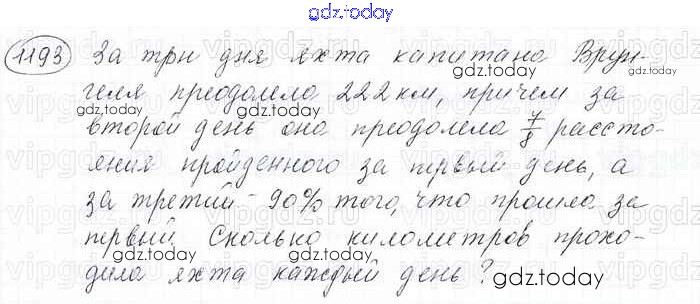 gdz.today
1193 За три дня яхта капитана Врун-
геля преодолела 222 км, причем за
второй день она преодолела 7/8 рассто-
яния пройденного за первый день, а
за третий - 90% того, что прошла за
первый. Сколько километров прохо-
дила яхта каждый день?
gdz.today